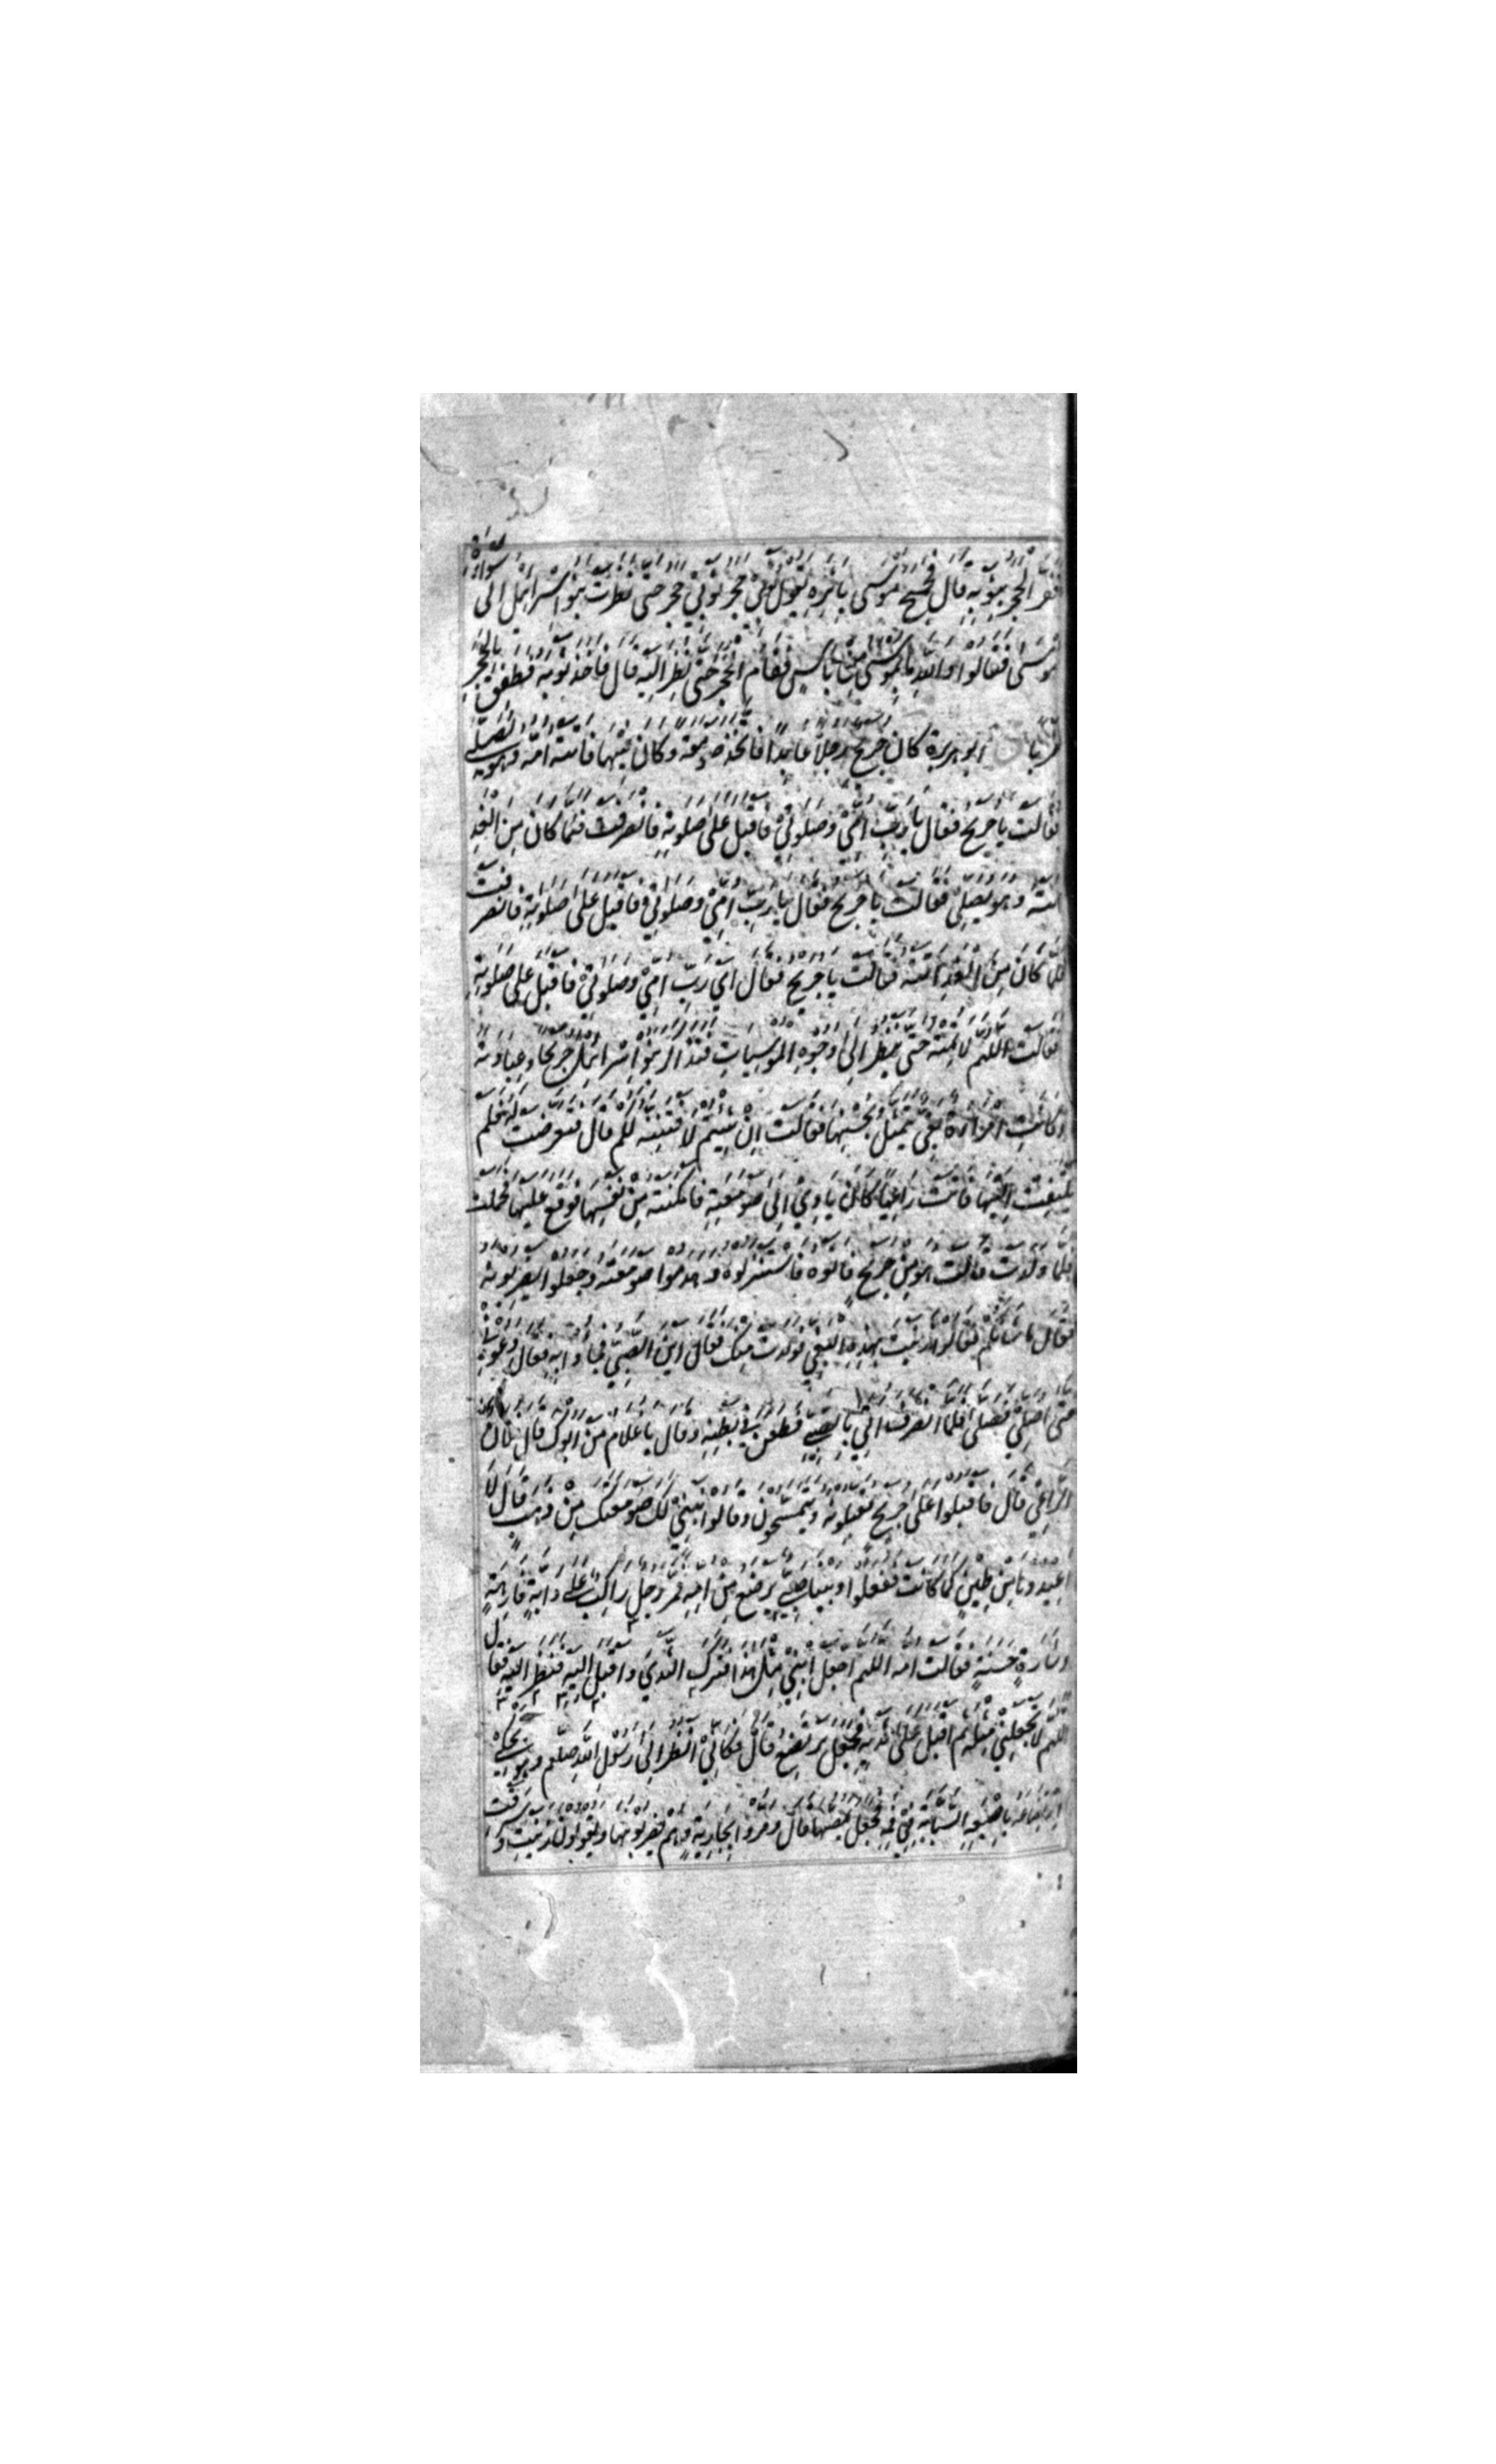 ففر الحجر بثوبه قال فجمح موسى باثره يقول ثوبي حجر ثوبي حجر حتى نظرت بنوا اسرائيل الى سواة
موسى فقالوا والله ما بموسى من باس فقام الحجر حتى نظر اليه قال فاخذ ثوبه فطفق بالحجر
ضربا ابو هريرة كان جريج رجلا عابدا فاتخذ صومعة وكان فيها فاتته امه وهو يصلي
فقالت يا جريج فقال يا رب امي وصلوتي فاقبل على صلوته فانصرفت فلما كان من الغد
اتته وهو يصلي فقالت يا جريج فقال يا رب امي وصلوتي فاقبل على صلوته فانصرفت
فلما كان من الغد اتته فقالت يا جريج فقال اي رب امي وصلوتي فاقبل على صلوته
فقالت اللهم لا تمته حتى ينظر الى وجوه المومسات فتذاكر بنوا اسرائيل جريجا وعبادته
وكانت امراة بغي يتمثل بحسنها فقالت ان شئتم لافتننه لكم قال فتعرضت له فلم
يلتفت اليها فاتت راعيا كان ياوي الى صومعته فامكنته من نفسها فوقع عليها فحملت
فلما ولدت قالت هو من جريج فاتوه فاستنزلوه وهدموا صومعته وجعلوا يضربونه
فقال ما شانكم فقالوا زنيت بهذه البغي فولدت منك فقال اين الصبي فجاوا به فقال دعوني
حتى اصلي فصلى فلما انصرف اتي بالصبي فطعن في بطنه وقال يا غلام من ابوك قال فلان
الراعي قال فاقبلوا على جريج يقبلونه ويتمسحون وقالوا نبني لك صومعتك من ذهب قال لا
اعيدوها من طين كما كانت ففعلوا وبينا صبي يرضع من امه فمر رجل راكب على دابة فارهة
وشارة حسنة فقالت امه اللهم اجعل ابني مثل هذا فترك الثدي واقبل اليه فنظر اليه فقال
اللهم لا تجعلني مثله ثم اقبل على ثديه فجعل يرتضع قال فكاني انظر الى رسول الله صلعم وهو يحكي
ارتضاعه باصبعه السبابة في فمه فجعل يمصها قال ومروا بجارية وهم يضربونها ويقولون زنيت وسرقت